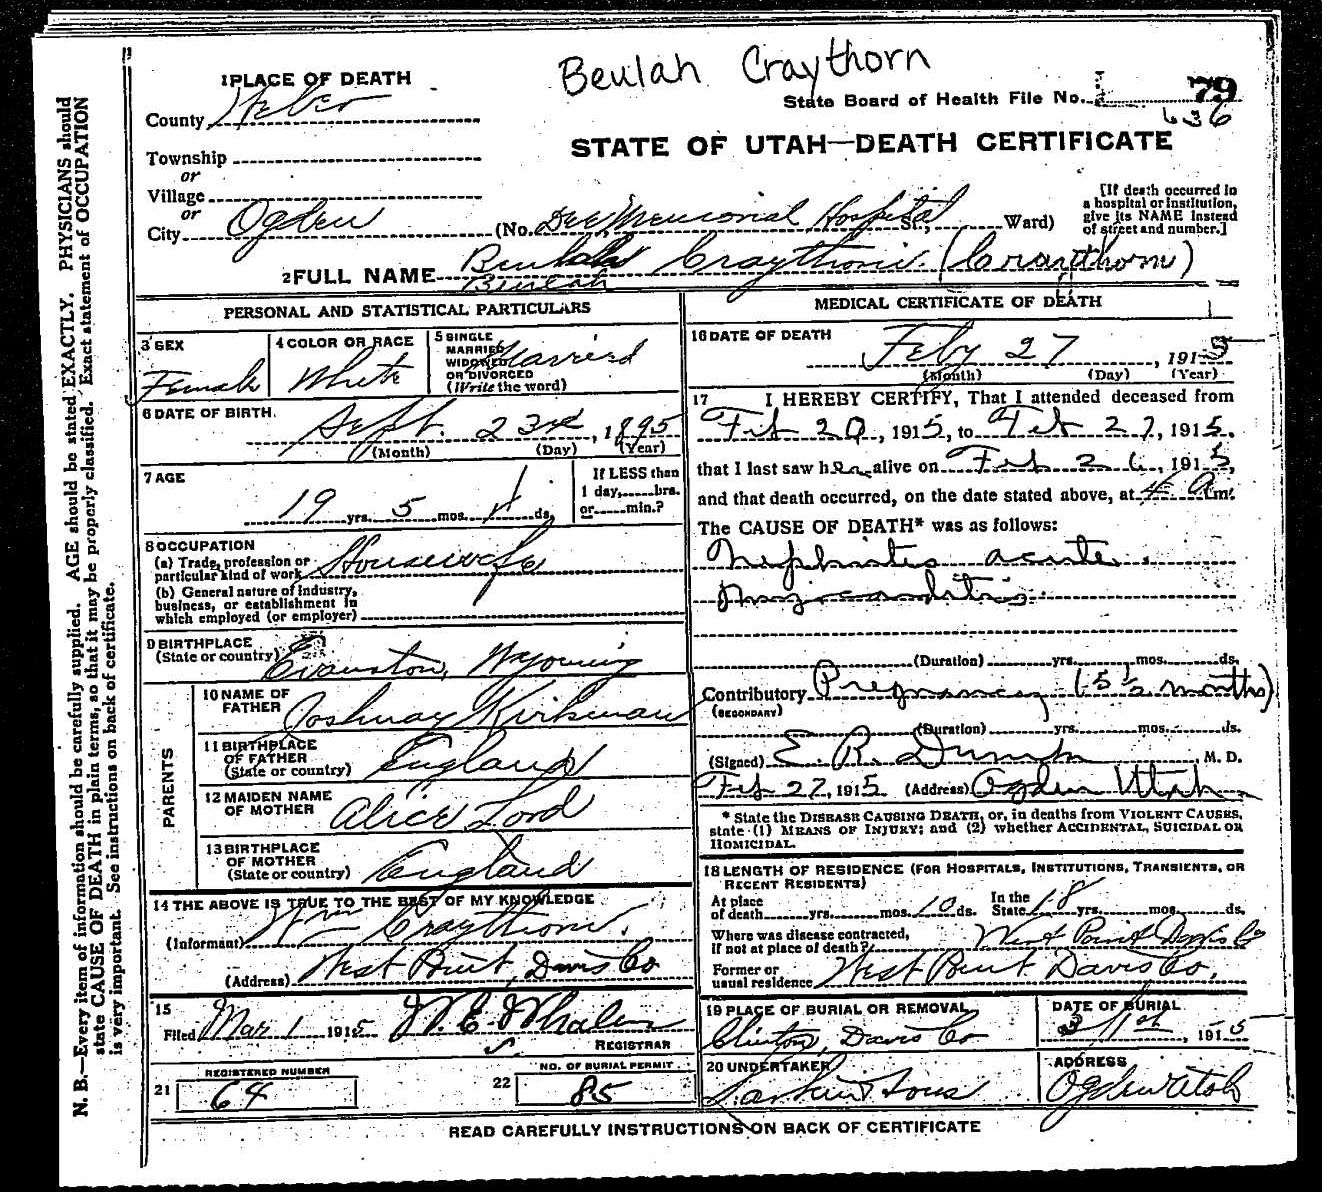 Beulah Craythorn
State Board of Health File No. 79
636
STATE OF UTAH—DEATH CERTIFICATE
1 PLACE OF DEATH
County Weber
Township
or
Village
or
City Ogden (No. Dee Memorial Hospital St., Ward)
[If death occurred in
a hospital or institution,
give its NAME instead
of street and number.]
2 FULL NAME Beulah Craythorn. (Craythorn)
Beulah
PERSONAL AND STATISTICAL PARTICULARS
3 SEX
Female
4 COLOR OR RACE
White
5 SINGLE
MARRIED
WIDOWED
OR DIVORCED
(Write the word)
Married
6 DATE OF BIRTH.
Sept. 23rd, 1895
(Month) (Day) (Year)
7 AGE
19 yrs. 5 mos. ds.
If LESS than
1 day, hrs.
or min.?
8 OCCUPATION
(a) Trade, profession or
particular kind of work Housewife
(b) General nature of industry,
business, or establishment in
which employed (or employer)
9 BIRTHPLACE
(State or country) Evanston, Wyoming
PARENTS
10 NAME OF
FATHER Joshuay Kirkman
11 BIRTHPLACE
OF FATHER
(State or country) England
12 MAIDEN NAME
OF MOTHER Alice Lord
13 BIRTHPLACE
OF MOTHER
(State or country) England
14 THE ABOVE IS TRUE TO THE BEST OF MY KNOWLEDGE
(Informant) Wm Craythorn.
(Address) West Point, Davis Co
15
Filed Mar 1 1915 W. E. Whalen
REGISTRAR
21 REGISTERED NUMBER
64
22 NO. OF BURIAL PERMIT
85
MEDICAL CERTIFICATE OF DEATH
16 DATE OF DEATH
Feby 27, 1915
(Month) (Day) (Year)
17 I HEREBY CERTIFY, That I attended deceased from
Feb 20, 1915, to Feb 27, 1915.
that I last saw her alive on Feb 26, 1915,
and that death occurred, on the date stated above, at 4 a m.
The CAUSE OF DEATH* was as follows:
Nephritis acute.
Myocarditis.
(Duration) yrs. mos. ds.
Contributory Pregnancy (5 1/2 months)
(SECONDARY)
(Duration) yrs. mos. ds.
(Signed) E. R. Dumke, M. D.
Feb 27, 1915 (Address) Ogden Utah
* State the DISEASE CAUSING DEATH, or, in deaths from VIOLENT CAUSES,
state (1) MEANS OF INJURY; and (2) whether ACCIDENTAL, SUICIDAL OR
HOMICIDAL.
18 LENGTH OF RESIDENCE (FOR HOSPITALS, INSTITUTIONS, TRANSIENTS, OR
RECENT RESIDENTS)
At place
of death yrs. mos. 10 ds. In the
State 18 yrs. mos. ds.
Where was disease contracted,
if not at place of death? West Point Davis Co
Former or
usual residence West Point Davis Co.
19 PLACE OF BURIAL OR REMOVAL
Clinton, Davis Co
DATE OF BURIAL
3 1st, 1915
20 UNDERTAKER
Larkin & Sons
ADDRESS
Ogden Utah
READ CAREFULLY INSTRUCTIONS ON BACK OF CERTIFICATE
N. B.—Every item of information should be carefully supplied. AGE should be stated EXACTLY. PHYSICIANS should
state CAUSE OF DEATH in plain terms, so that it may be properly classified. Exact statement of OCCUPATION
is very important. See instructions on back of certificate.